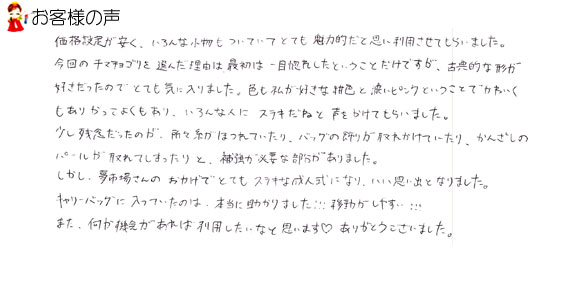 お客様の声
価格設定が安く、いろんな小物もついていてとても魅力的だと思い利用させてもらいました。
今回のチマチョゴリを選んだ理由は最初は一目惚れしたということだけですが、古典的な形が
好きだったのでとても気に入りました。色も私が好きな紺色と濃いピンクということでかわいく
もありかっこよくもあり、いろんな人にステキだねと声をかけてもらいました。
少し残念だったのが、所々糸がほつれていたり、バッグの飾りが取れかけていたり、かんざしの
パールが取れてしまったりと、補強が必要な部分がありました。
しかし、夢市場さんのおかげでとてもステキな成人式になり、いい思い出となりました。
キャリーバッグに入っていたのは、本当に助かりました!!! 移動がしやすい!!!
また、何か機会があれば利用したいなと思います♡ ありがとうございました。